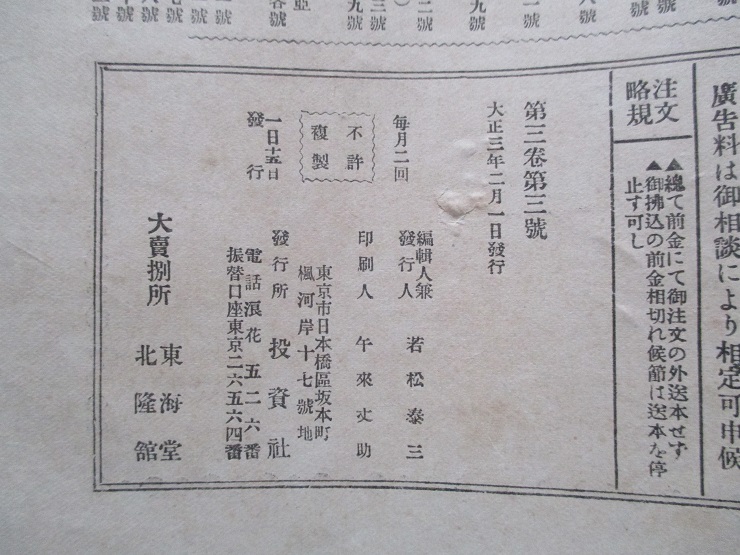 廣告料は御相談により相定可申候
注文略規
▲總て前金にて御注文の外送本せず
▲御拂込の前金相切れ候節は送本を停
止す可し
第三卷第三號
大正三年二月一日發行
毎月二回
一日十五日
發行
不許
複製
編輯人兼
發行人 若松泰三
印刷人 午來丈助
東京市日本橋區坂本町
楓河岸十七號地
發行所 投資社
電話浪花五二六番
振替口座東京二六五六四番
大賣捌所 東海堂
北隆館